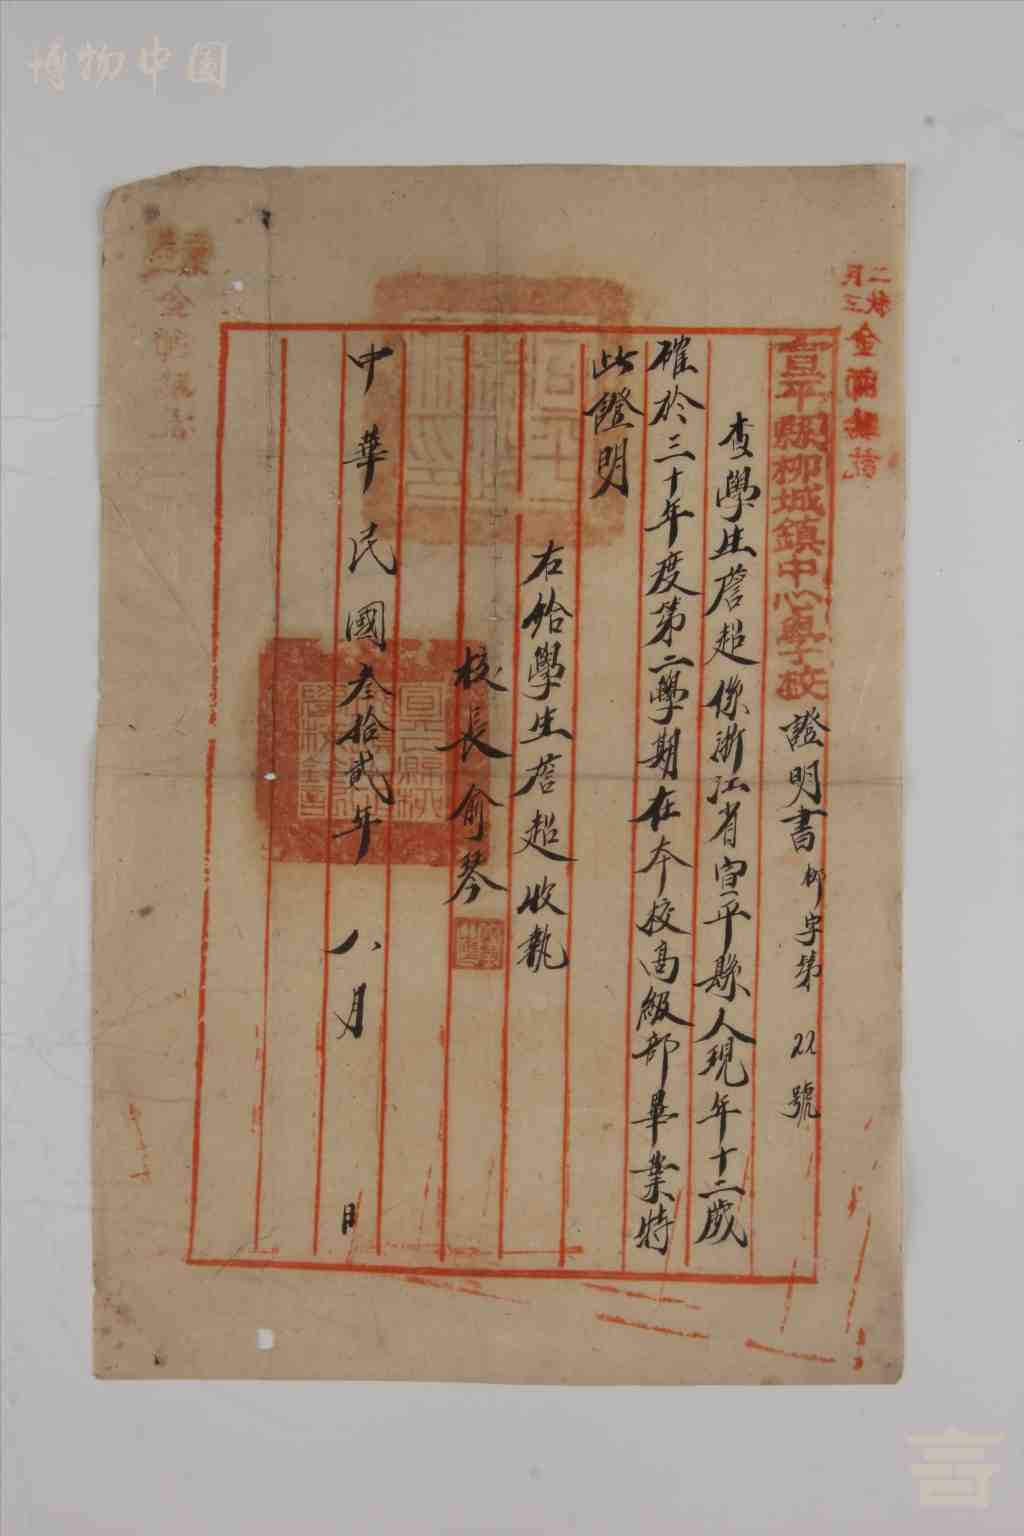 博物中国
宣平縣柳城鎮中心學校證明書柳字第22號
查學生詹超係浙江省宣平縣人現年十二歲
確於三十年度第二學期在本校高級部畢業特
此證明
右給學生詹超收執
校長俞琴
中華民國叁拾貳年八月日